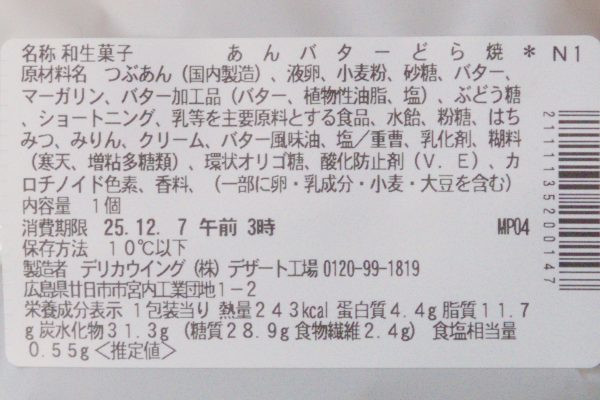 名称 和生菓子　　あんバターどら焼＊N1
原材料名　つぶあん（国内製造）、液卵、小麦粉、砂糖、バター、
マーガリン、バター加工品（バター、植物性油脂、塩）、ぶどう糖
、ショートニング、乳等を主要原料とする食品、水飴、粉糖、はち
みつ、みりん、クリーム、バター風味油、塩／重曹、乳化剤、糊料
（寒天、増粘多糖類）、環状オリゴ糖、酸化防止剤（V．E）、カ
ロチノイド色素、香料、（一部に卵・乳成分・小麦・大豆を含む）
内容量　1個
消費期限　25.12. 7 午前 3時　MP04
保存方法　10℃以下
製造者　デリカウイング（株）デザート工場 0120-99-1819
広島県廿日市市宮内工業団地1-2
栄養成分表示 1包装当り 熱量243kcal 蛋白質4.4g 脂質11.7
g 炭水化物31.3g（糖質28.9g 食物繊維2.4g） 食塩相当量
0.55g＜推定値＞
21111135200147